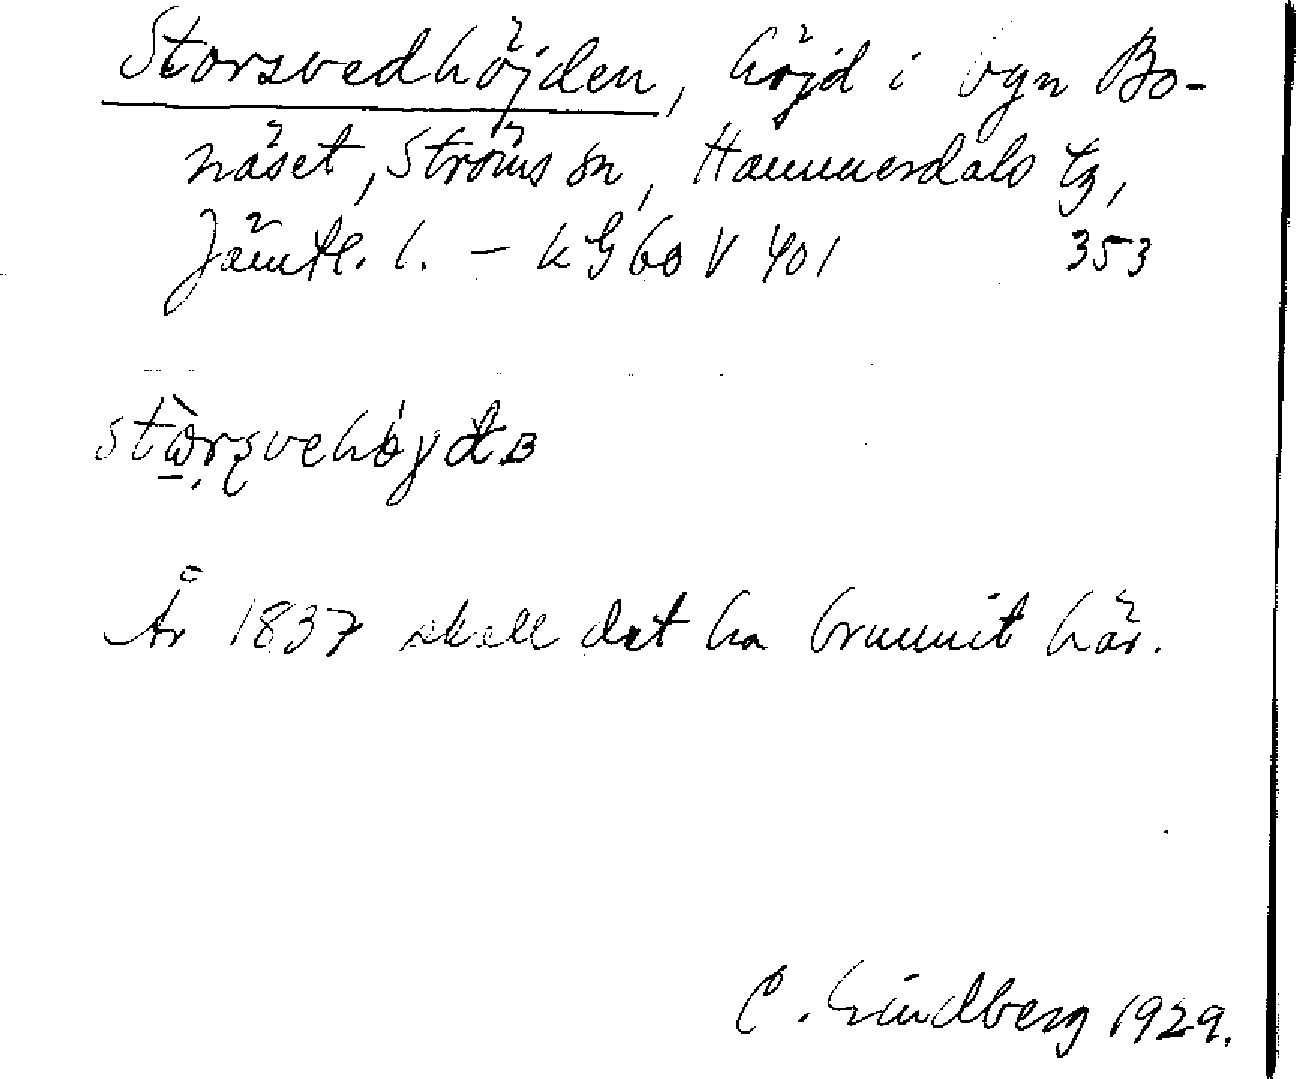 Storsvedhöjden, höjd i byn Bo-
näset, Ströms sn, Hammerdals tg,
Jämtl. l. – kG60 V 401 353
År 1837 skall det ha brunnit här.
C. Lindberg 1929.